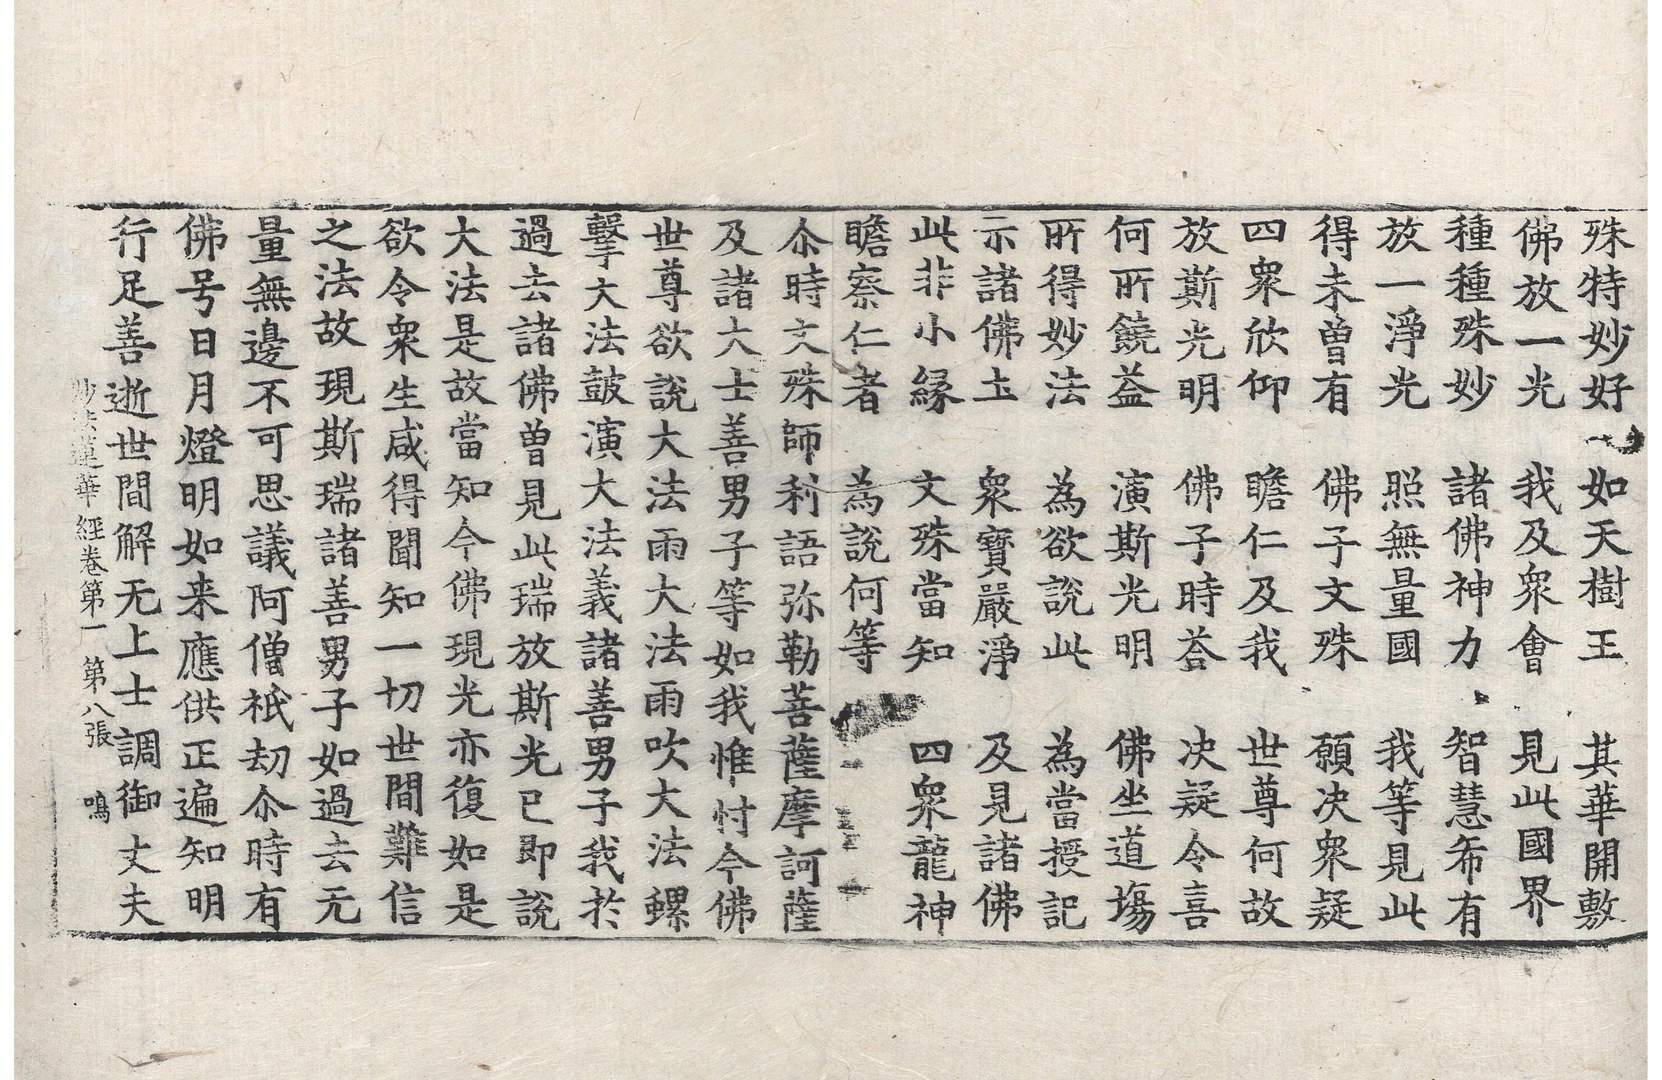 殊特妙好 如天樹王 其華開敷
佛放一光 我及衆會 見此國界
種種殊妙 諸佛神力 智慧希有
放一淨光 照無量國 我等見此
得未曽有 佛子文殊 願决衆疑
四衆欣仰 瞻仁及我 世尊何故
放斯光明 佛子時荅 决疑令喜
何所饒益 演斯光明 佛坐道塲
所得妙法 為欲說此 為當授記
示諸佛土 衆寶嚴淨 及見諸佛
此非小縁 文殊當知 四衆龍神
瞻察仁者 為說何等
尒時文殊師利語弥勒菩薩摩訶薩
及諸大士善男子等如我惟忖今佛
世尊欲說大法雨大法雨吹大法螺
擊大法鼓演大法義諸善男子我於
過去諸佛曽見此瑞放斯光已即說
大法是故當知今佛現光亦復如是
欲令衆生咸得聞知一切世間難信
之法故現斯瑞諸善男子如過去无
量無邊不可思議阿僧祇劫尒時有
佛号日月燈明如来應供正遍知明
行足善逝世間解无上士調御丈夫
妙法蓮華經卷第一 第八張 鳴